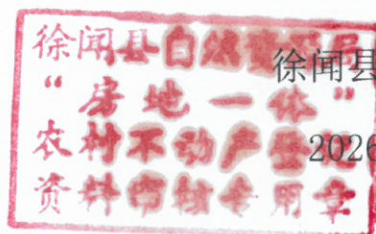 徐闻县自然资源局
“房地一体”
农村不动产登记
资料审核专用章
徐闻县
2026